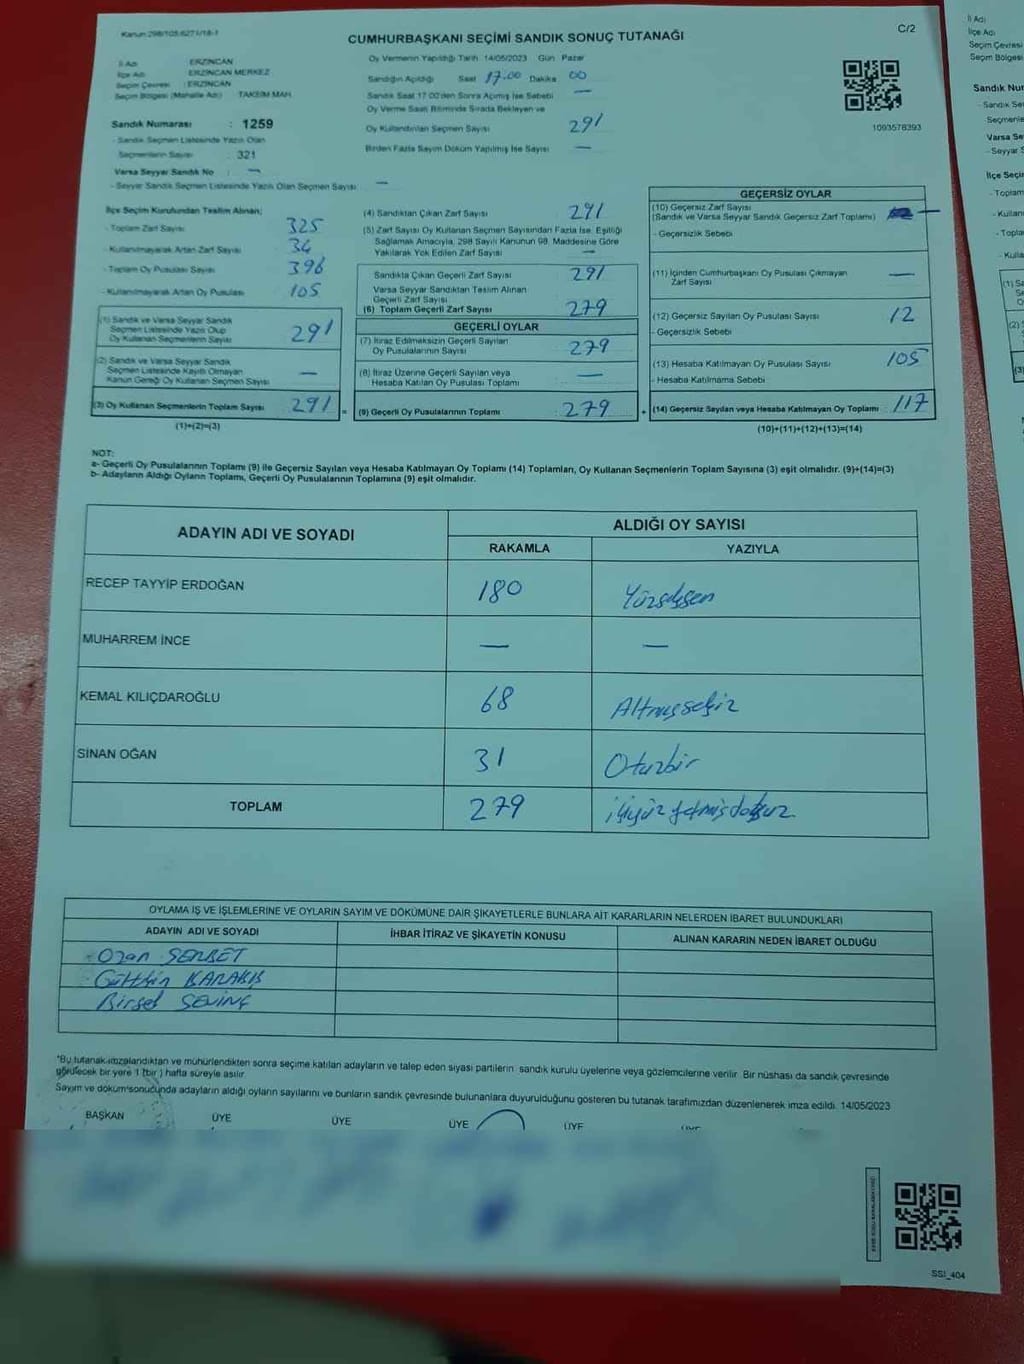 Kanun 298/105:6271/18-1
C/2
CUMHURBAŞKANI SEÇİMİ SANDIK SONUÇ TUTANAĞI
İl Adı : ERZİNCAN
İlçe Adı : ERZİNCAN MERKEZ
Seçim Çevresi : ERZİNCAN
Seçim Bölgesi (Mahalle Adı) : TAKSİM MAH.
Sandık Numarası : 1259
- Sandık Seçmen Listesinde Yazılı Olan
Seçmenlerin Sayısı : 321
Varsa Seyyar Sandık No : —
- Seyyar Sandık Seçmen Listesinde Yazılı Olan Seçmen Sayısı —
Oy Vermenin Yapıldığı Tarih 14/05/2023 Gün Pazar
Sandığın Açıldığı Saat 17.00 Dakika 00
Sandık Saat 17.00'den Sonra Açılmış İse Sebebi —
Oy Verme Saati Bitiminde Sırada Bekleyen ve
Oy Kullandırılan Seçmen Sayısı 291
Birden Fazla Sayım Döküm Yapılmış İse Sayısı —
1093578393
İlçe Seçim Kurulundan Teslim Alınan;
- Toplam Zarf Sayısı 325
- Kullanılmayarak Artan Zarf Sayısı 34
- Toplam Oy Pusulası Sayısı 396
- Kullanılmayarak Artan Oy Pusulası 105
(1) Sandık ve Varsa Seyyar Sandık
Seçmen Listesinde Yazılı Olup
Oy Kullanan Seçmenlerin Sayısı 291
(2) Sandık ve Varsa Seyyar Sandık
Seçmen Listesinde Kayıtlı Olmayan
Kanun Gereği Oy Kullanan Seçmen Sayısı —
(3) Oy Kullanan Seçmenlerin Toplam Sayısı 291
(1)+(2)=(3)
(4) Sandıktan Çıkan Zarf Sayısı 291
(5) Zarf Sayısı Oy Kullanan Seçmen Sayısından Fazla İse, Eşitliği
Sağlamak Amacıyla, 298 Sayılı Kanunun 98. Maddesine Göre
Yakılarak Yok Edilen Zarf Sayısı —
Sandıkta Çıkan Geçerli Zarf Sayısı 291
Varsa Seyyar Sandıktan Teslim Alınan
Geçerli Zarf Sayısı
(6) Toplam Geçerli Zarf Sayısı 279
GEÇERLİ OYLAR
(7) İtiraz Edilmeksizin Geçerli Sayılan
Oy Pusulalarının Sayısı 279
(8) İtiraz Üzerine Geçerli Sayılan veya
Hesaba Katılan Oy Pusulası Toplamı —
(9) Geçerli Oy Pusulalarının Toplamı 279
GEÇERSİZ OYLAR
(10) Geçersiz Zarf Sayısı
(Sandık ve Varsa Seyyar Sandık Geçersiz Zarf Toplamı) —
- Geçersizlik Sebebi
(11) İçinden Cumhurbaşkanı Oy Pusulası Çıkmayan
Zarf Sayısı —
(12) Geçersiz Sayılan Oy Pusulası Sayısı 12
- Geçersizlik Sebebi
(13) Hesaba Katılmayan Oy Pusulası Sayısı 105
- Hesaba Katılmama Sebebi
(14) Geçersiz Sayılan veya Hesaba Katılmayan Oy Toplamı 117
(10)+(11)+(12)+(13)=(14)
NOT:
a- Geçerli Oy Pusulalarının Toplamı (9) ile Geçersiz Sayılan veya Hesaba Katılmayan Oy Toplamı (14) Toplamları, Oy Kullanan Seçmenlerin Toplam Sayısına (3) eşit olmalıdır. (9)+(14)=(3)
b- Adayların Aldığı Oyların Toplamı, Geçerli Oy Pusulalarının Toplamına (9) eşit olmalıdır.
ADAYIN ADI VE SOYADI
ALDIĞI OY SAYISI
RAKAMLA YAZIYLA
RECEP TAYYİP ERDOĞAN 180 Yüzseksen
MUHARREM İNCE — —
KEMAL KILIÇDAROĞLU 68 Altmışsekiz
SİNAN OĞAN 31 Otuzbir
TOPLAM 279 ikiyüz yetmişdokuz
OYLAMA İŞ VE İŞLEMLERİNE VE OYLARIN SAYIM VE DÖKÜMÜNE DAİR ŞİKAYETLERLE BUNLARA AİT KARARLARIN NELERDEN İBARET BULUNDUKLARI
ADAYIN ADI VE SOYADI İHBAR İTİRAZ VE ŞİKAYETİN KONUSU ALINAN KARARIN NEDEN İBARET OLDUĞU
- Ozan SERBET
- Gülthin KARAKIŞ
- Birsel SEVİNÇ
"Bu tutanak imzalandıktan ve mühürlendikten sonra seçime katılan adayların ve talep eden siyasi partilerin sandık kurulu üyelerine veya gözlemcilerine verilir. Bir nüshası da sandık çevresinde
görülecek bir yere 1 (bir) hafta süreyle asılır.
Sayım ve döküm sonucunda adayların aldığı oyların sayılarını ve bunların sandık çevresinde bulunanlara duyurulduğunu gösteren bu tutanak tarafımızdan düzenlenerek imza edildi. 14/05/2023
BAŞKAN ÜYE ÜYE ÜYE ÜYE ÜYE
SSI_404
İl Adı
İlçe Adı
Seçim Çevresi
Seçim Bölgesi
Sandık Nur